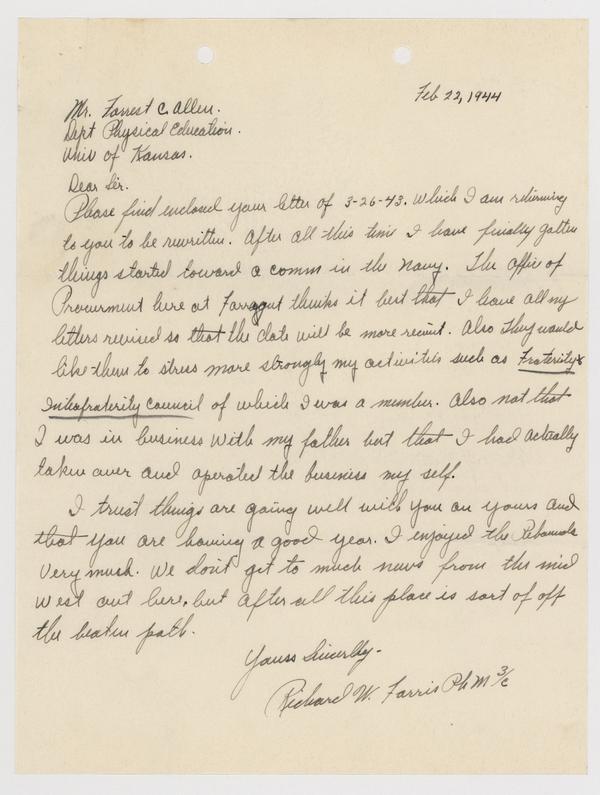 Feb 22, 1944
Mr. Forrest C. Allen.
Dept Physical Education.
Univ of Kansas.
Dear Sir.
Please find enclosed your letter of 3-26-43. Which I am returning
to you to be rewritten. After all this time I have finally gotten
things started toward a comm in the Navy. The office of
Procurment here at Farragut thinks it best that I have all my
letters revised so that the date will be more recent. Also they would
like them to stress more strongly my activities such as Fraterity &
Intrafraterity council of which I was a member. Also not that
I was in business with my father but that I had actually
taken over and operated the business my self.
I trust things are going well with you an yours and
that you are having a good year. I enjoyed the Rebounds
very much. We don't get to much news from the mid
west out here, but after all this place is sort of off
the beaten path.
Yours Sincerlly-
Richard W. Farris Ph M 3/c